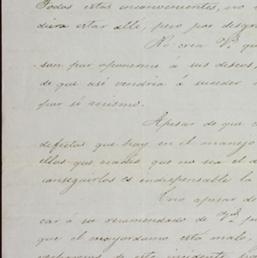 Todos estos inconvenientes, no
diera estar allí, pero por desgr
No crea V. qu
san por oponerme á sus deseos,
de que así vendria á suceder
por sí mismo.
Apesar de que
defectos que hay en el manejo
ellos que nadie que no sea el d
conseguirlos es indispensable la
no apesar de
car á su recomendado de
que el mayordomo está malo,
de este incidente